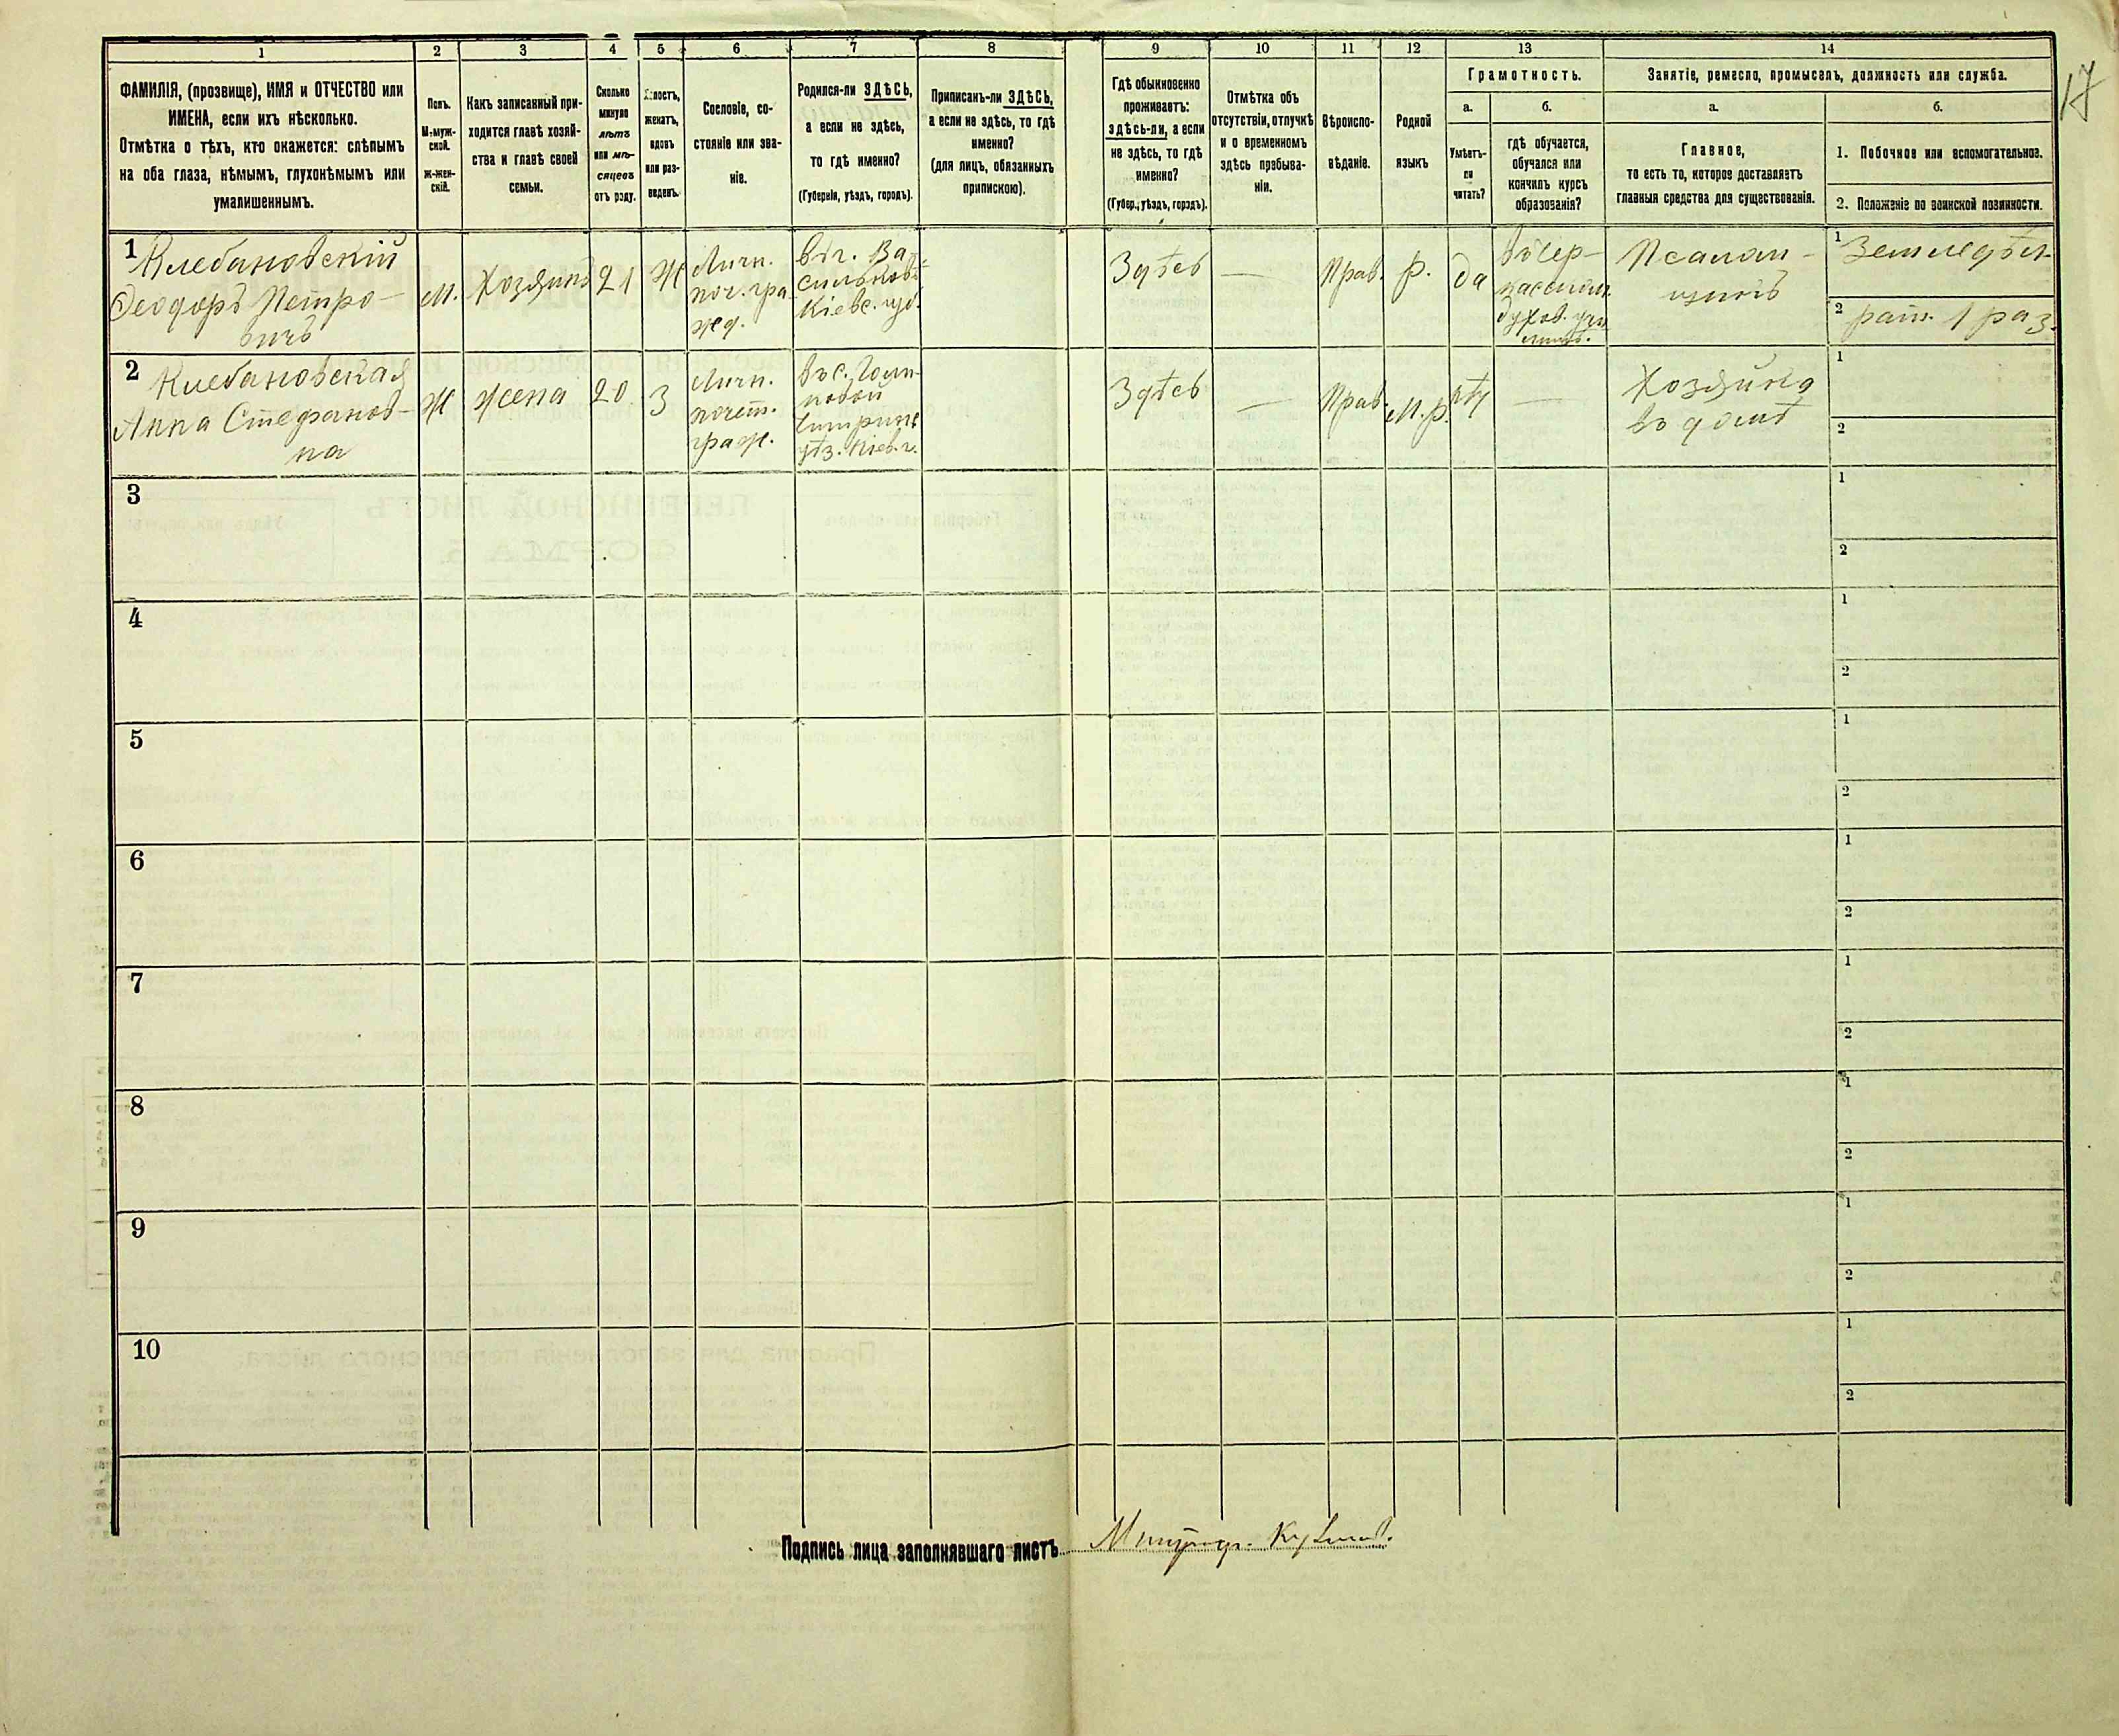 17
1 2 3 4 5 6 7 8 9 10 11 12 13 14
ФАМИЛІЯ, (прозвище), ИМЯ и ОТЧЕСТВО или
ИМЕНА, если ихъ нѣсколько.
Отмѣтка о тѣхъ, кто окажется: слѣпымъ
на оба глаза, нѣмымъ, глухонѣмымъ или
умалишеннымъ.
Полъ.
М-муж-
ской.
ж-жен-
скій.
Какъ записанный при-
ходится главѣ хозяй-
ства и главѣ своей
семьи.
Сколько
минуло
лѣтъ
или мѣ-
сяцевъ
отъ роду.
Холостъ,
женатъ,
вдовъ
или раз-
веденъ.
Сословіе, со-
стояніе или зва-
ніе.
Родился-ли ЗДѢСЬ,
а если не здѣсь,
то гдѣ именно?
(Губернія, уѣздъ, городъ).
Приписанъ-ли ЗДѢСЬ,
а если не здѣсь, то гдѣ
именно?
(для лицъ, обязанныхъ
припискою).
Гдѣ обыкновенно
проживаетъ:
здѣсь-ли, а если
не здѣсь, то гдѣ
именно?
(Губер., уѣздъ, городъ).
Отмѣтка объ
отсутствіи, отлучкѣ
и о временномъ
здѣсь пребыва-
ніи.
Вѣроиспо-
вѣданіе.
Родной
языкъ
Грамотность.
а. б.
Умѣетъ-
ли
читать?
гдѣ обучается,
обучался или
кончилъ курсъ
образованія?
Занятіе, ремесло, промыселъ, должность или служба.
а. б.
Главное,
то есть то, которое доставляетъ
главныя средства для существованія.
1. Побочное или вспомогательное.
2. Положеніе по воинской повинности.
1
Клебановскій
Ѳеодоръ Петро-
вичъ
м.
Хозяинъ
21
Ж
Личн.
поч. гра
жд.
въ г. Ва-
сильковѣ
Кіевс. губ.
Здѣсь
—
Прав.
р.
да
въ Чер-
касском.
духов. учи
лищѣ.
Псалом-
щикъ
1 Земледѣл.
2 рат. 1 раз.
2
Клебановская
Анна Стефанов-
на
Ж
жена
20
З
Личн.
почет.
граж.
въ с.
уѣз. Кіев. г.
Здѣсь
—
Прав.
м.р.
нѣт
—
Хозяйка
въ домѣ
1
2
3
1
2
4
1
2
5
1
2
6
1
2
7
1
2
8
1
2
9
1
2
10
1
2
Подпись лица заполнявшаго листъ